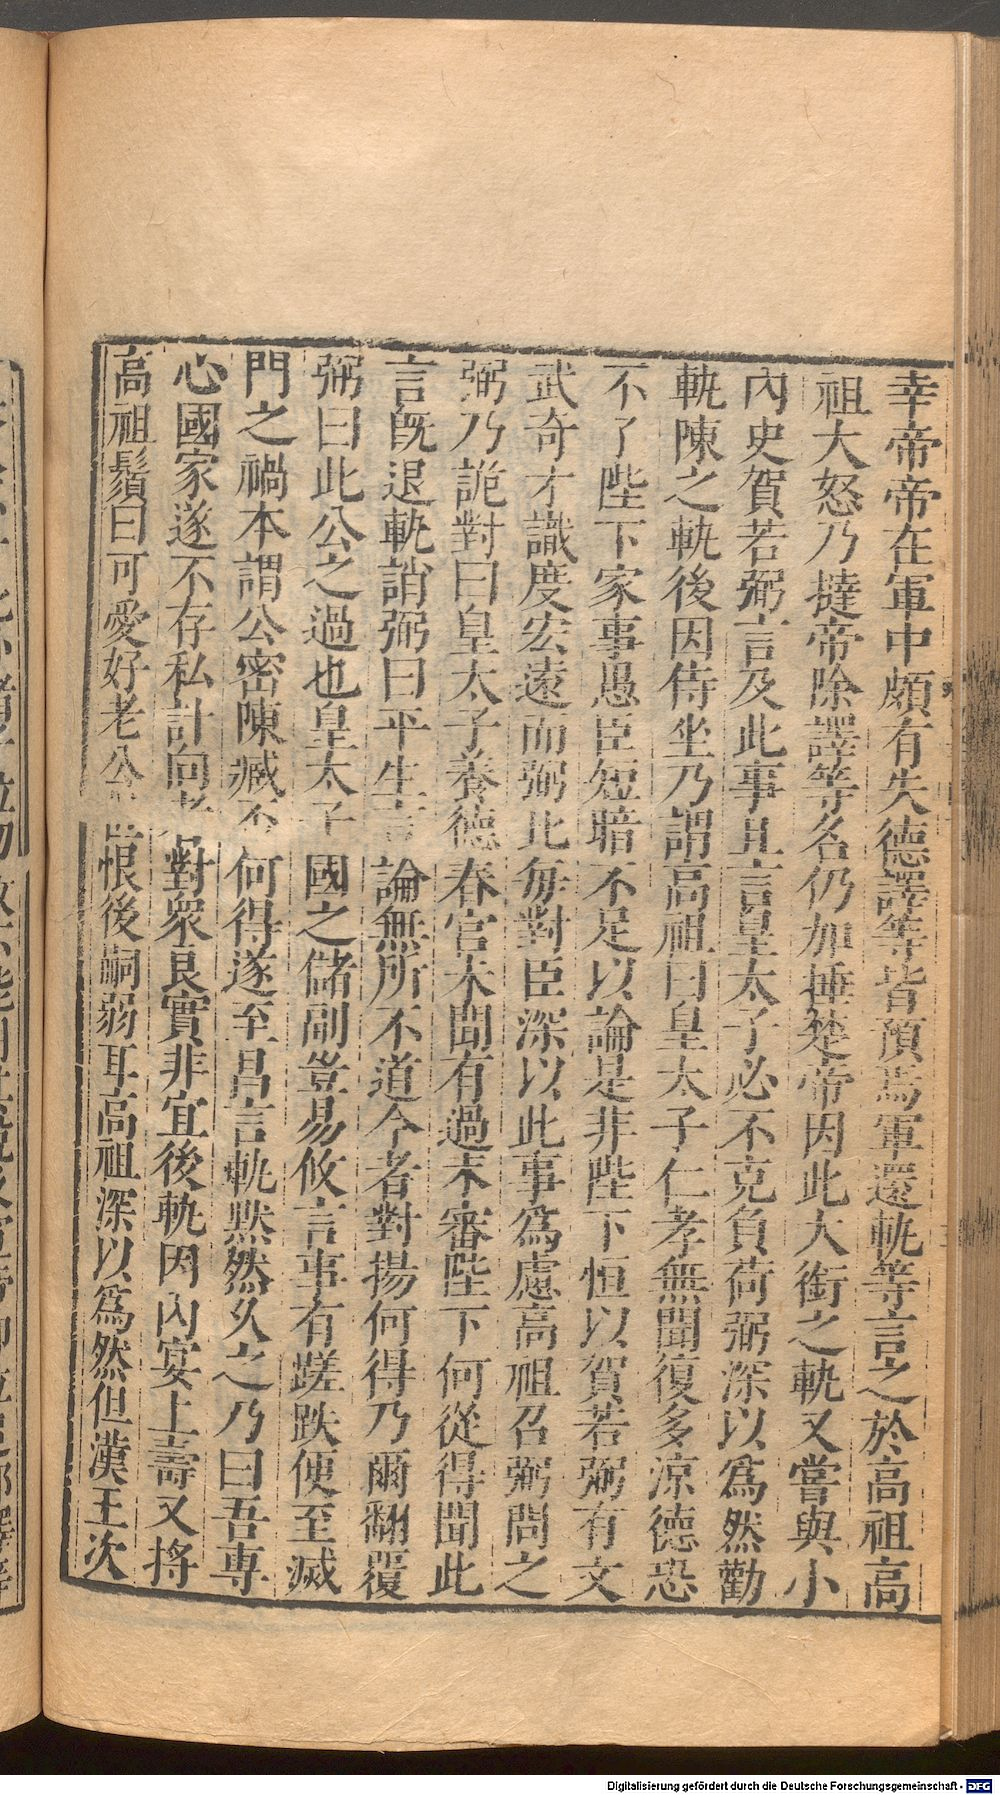 幸帝帝在軍中頗有失德譯等皆預焉軍還軌等言之於高祖高
祖大怒乃撻帝除譯等名仍加捶楚帝因此大銜之軌又嘗與小
內史賀若弼言及此事且言皇太子必不克負荷弼深以爲然勸
軌陳之軌後因侍坐乃謂高祖曰皇太子仁孝無聞復多涼德恐
不了陛下家事愚臣短暗不足以論是非陛下恒以賀若弼有文
武奇才識度宏遠而弼比每對臣深以此事爲慮高祖召弼問之
弼乃詭對曰皇太子養德春宮未聞有過未審陛下何從得聞此
言旣退軌誚弼曰平生言論無所不道今者對揚何得乃爾翻覆
弼曰此公之過也皇太子國之儲副豈易攸言事有蹉跌便至滅
門之禍本謂公密陳臧不何得遂至昌言軌默然久之乃曰吾專
心國家遂不存私計向者對衆良實非宜後軌因內宴上壽又捋
高祖鬚曰可愛好老公但恨後嗣弱耳高祖深以爲然但漢王次
Digitalisierung gefördert durch die Deutsche Forschungsgemeinschaft - DFG